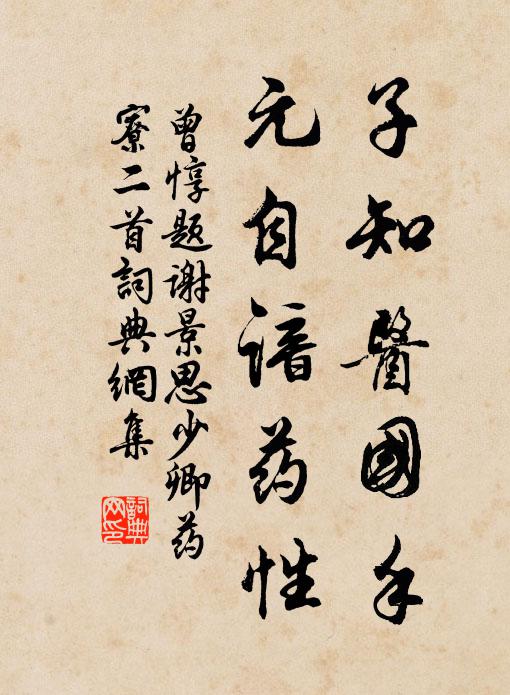 子知醫國手
元自谙药性
曾惇题谢景思少卿药
寮二首詞典網集
詞典
网印